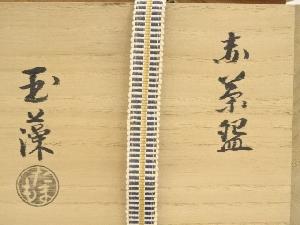 赤茶盌
玉藻